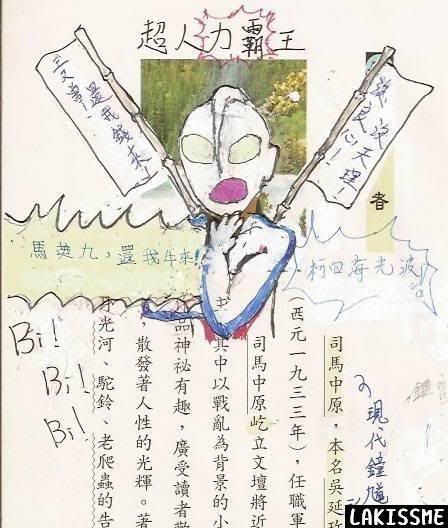 超人力霸王
還我錢來!
沒天理!
良心!!
者
馬英九，還我牛來!
光波
Bi!
Bi!
Bi!
現代鐘馗
司馬中原，本名吳延
(西元一九三三年)，任職軍
司馬中原屹立文壇將近
其中以戰亂為背景的小
品神祕有趣，廣受讀者歡
，散發著人性的光輝。著
月光河、駝鈴、老爬蟲的告
LAKISSME